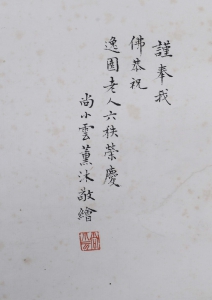 謹奉我
佛恭祝
逸園老人六秩榮慶
尚小雲薰沐敬繪